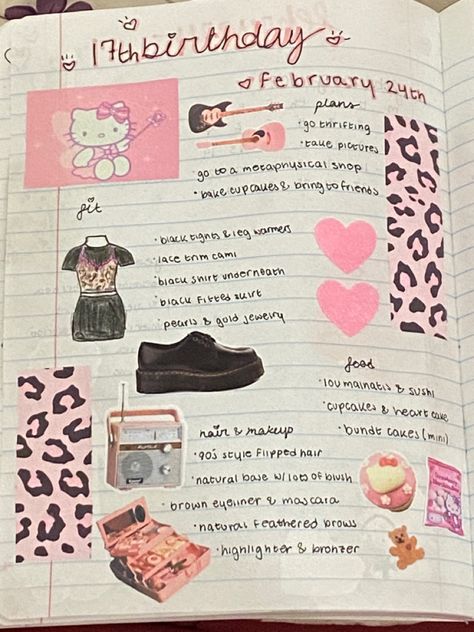 17th birthday
February 24th
plans
· go thrifting
· take pictures
· go to a metaphysical shop
· bake cupcakes & bring to friends
fit
· black tights & leg warmers
· lace trim cami
· black shirt underneath
· black fitted skirt
· pearls & gold jewelry
food
· lou malnatis & sushi
· cupcakes & heart cake
· bundt cakes (mini)
hair & makeup
· 90s style flipped hair
· natural base w/ lots of blush
· brown eyeliner & mascara
· natural feathered brows
· highlighter & bronzer